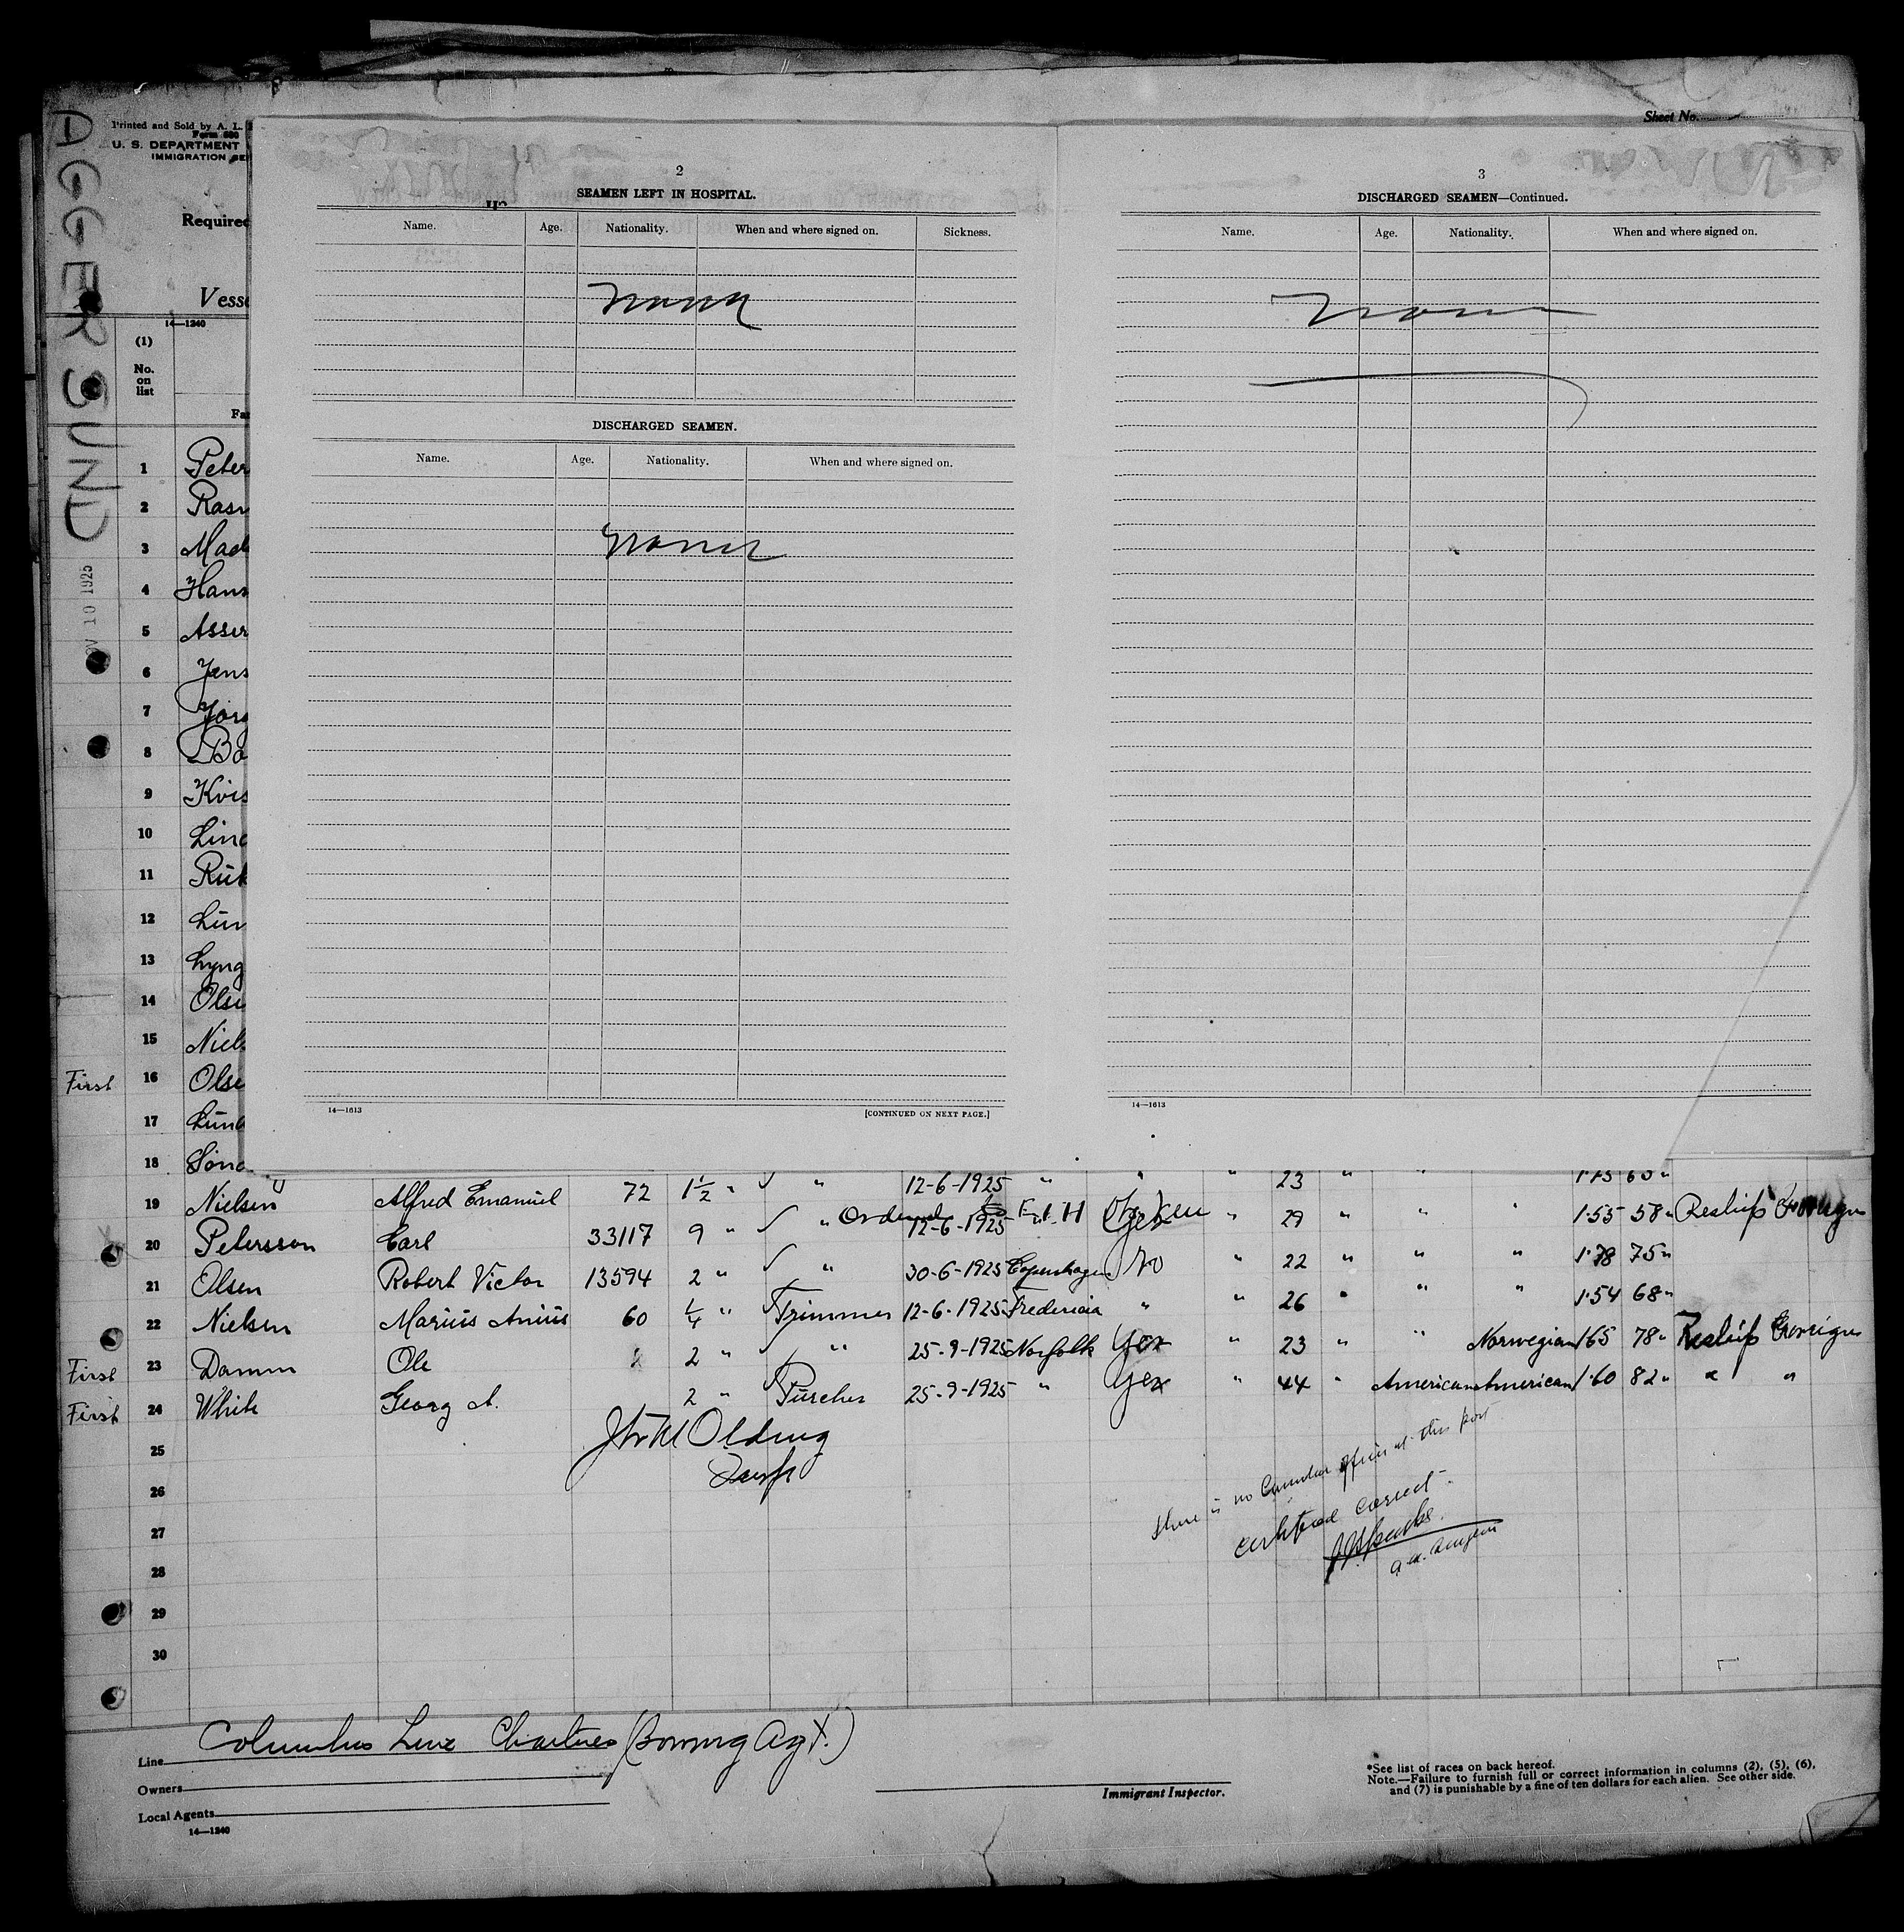 Sheet No.
Printed and Sold by A. L.
Form 680
U. S. DEPARTMENT
IMMIGRATION SE
AGGERSUND
OV 10 1925
Required
Vesse
14—1240
(1)
No.
on
list
Fa
1 Peter
2 Rasm
3 Mads
4 Hans
5 Asser
6 Jens
7 Jörg
8 Ba
9 Kvis
10 Lind
11 Rüt
12 Lün
13 Lyng
14 Olse
15 Niels
First 16 Olse
17 Lünd
18 Sönd
2
SEAMEN LEFT IN HOSPITAL.
Name. Age. Nationality. When and where signed on. Sickness.
None
DISCHARGED SEAMEN.
Name. Age. Nationality. When and where signed on.
None
14—1613
[CONTINUED ON NEXT PAGE.]
3
DISCHARGED SEAMEN—Continued.
Name. Age. Nationality. When and where signed on.
None
14—1613
19 Nielsen Alfred Emanuel 72 1½ " ✓ " 12-6-1925 " " " 23 " " " 1.75 65 "
Ordered to E.I.H
20 Petersson Carl 33117 9 " ✓ " 12-6-1925 " Yes " 29 " " " 1.55 58 " Reship Foreign
21 Olsen Robert Victor 13594 2 " ✓ " 30-6-1925 Copenhagen No " 22 " " " 1.78 75 "
22 Nielsen Marius Anius 60 ¼ " ✓ Trimmer 12-6-1925 Fredericia " " 26 " " " 1.54 68 "
First 23 Damm Ole 2 " ✓ " 25-9-1925 Norfolk Yes " 23 " " Norwegian 1.65 78 " Reship Foreign
First 24 White Georg A. 2 " ✓ Purcher 25-9-1925 " Yes " 44 " American American 1.60 82 " " "
25
26
27
28
29
30
There is no Consular officer at this port
Certified correct.
Line Columbus Line Charters (Boring Agt.)
Owners
Local Agents
14—1240
Immigrant Inspector.
*See list of races on back hereof.
Note.—Failure to furnish full or correct information in columns (2), (5), (6),
and (7) is punishable by a fine of ten dollars for each alien. See other side.